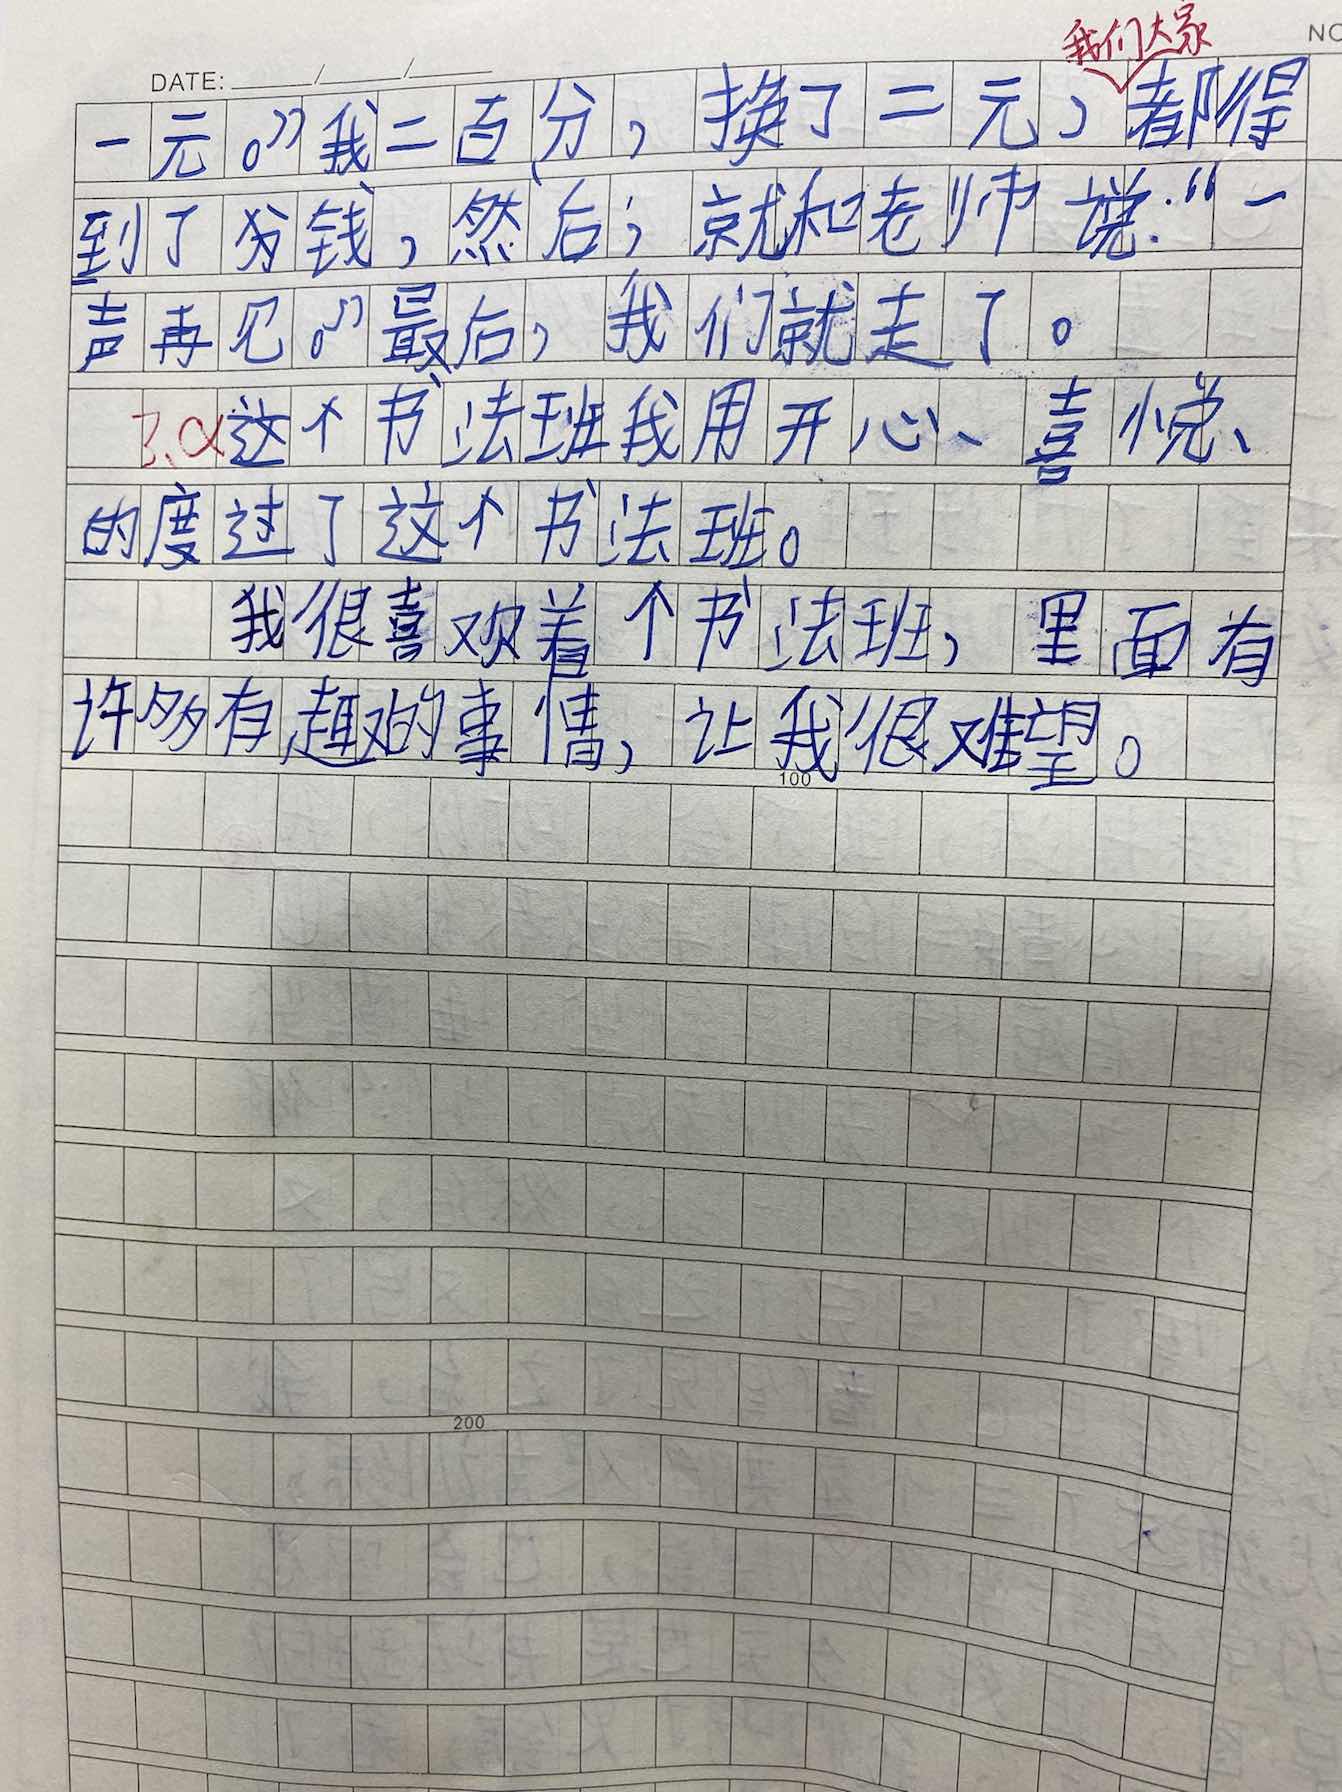 NO
我们大家
DATE: / /
一元。”我二百分，换了二元，都得
到了分钱，然后；就和老师说：“一
声再见。”最后，我们就走了。
这个书法班我用开心、喜悦、
的度过了这个书法班。
我很喜欢着个书法班，里面有
许多有趣的事情，让我很难望。
100
200